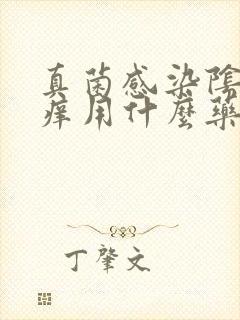 真菌感染陰
痒用什麼藥
丁肇文